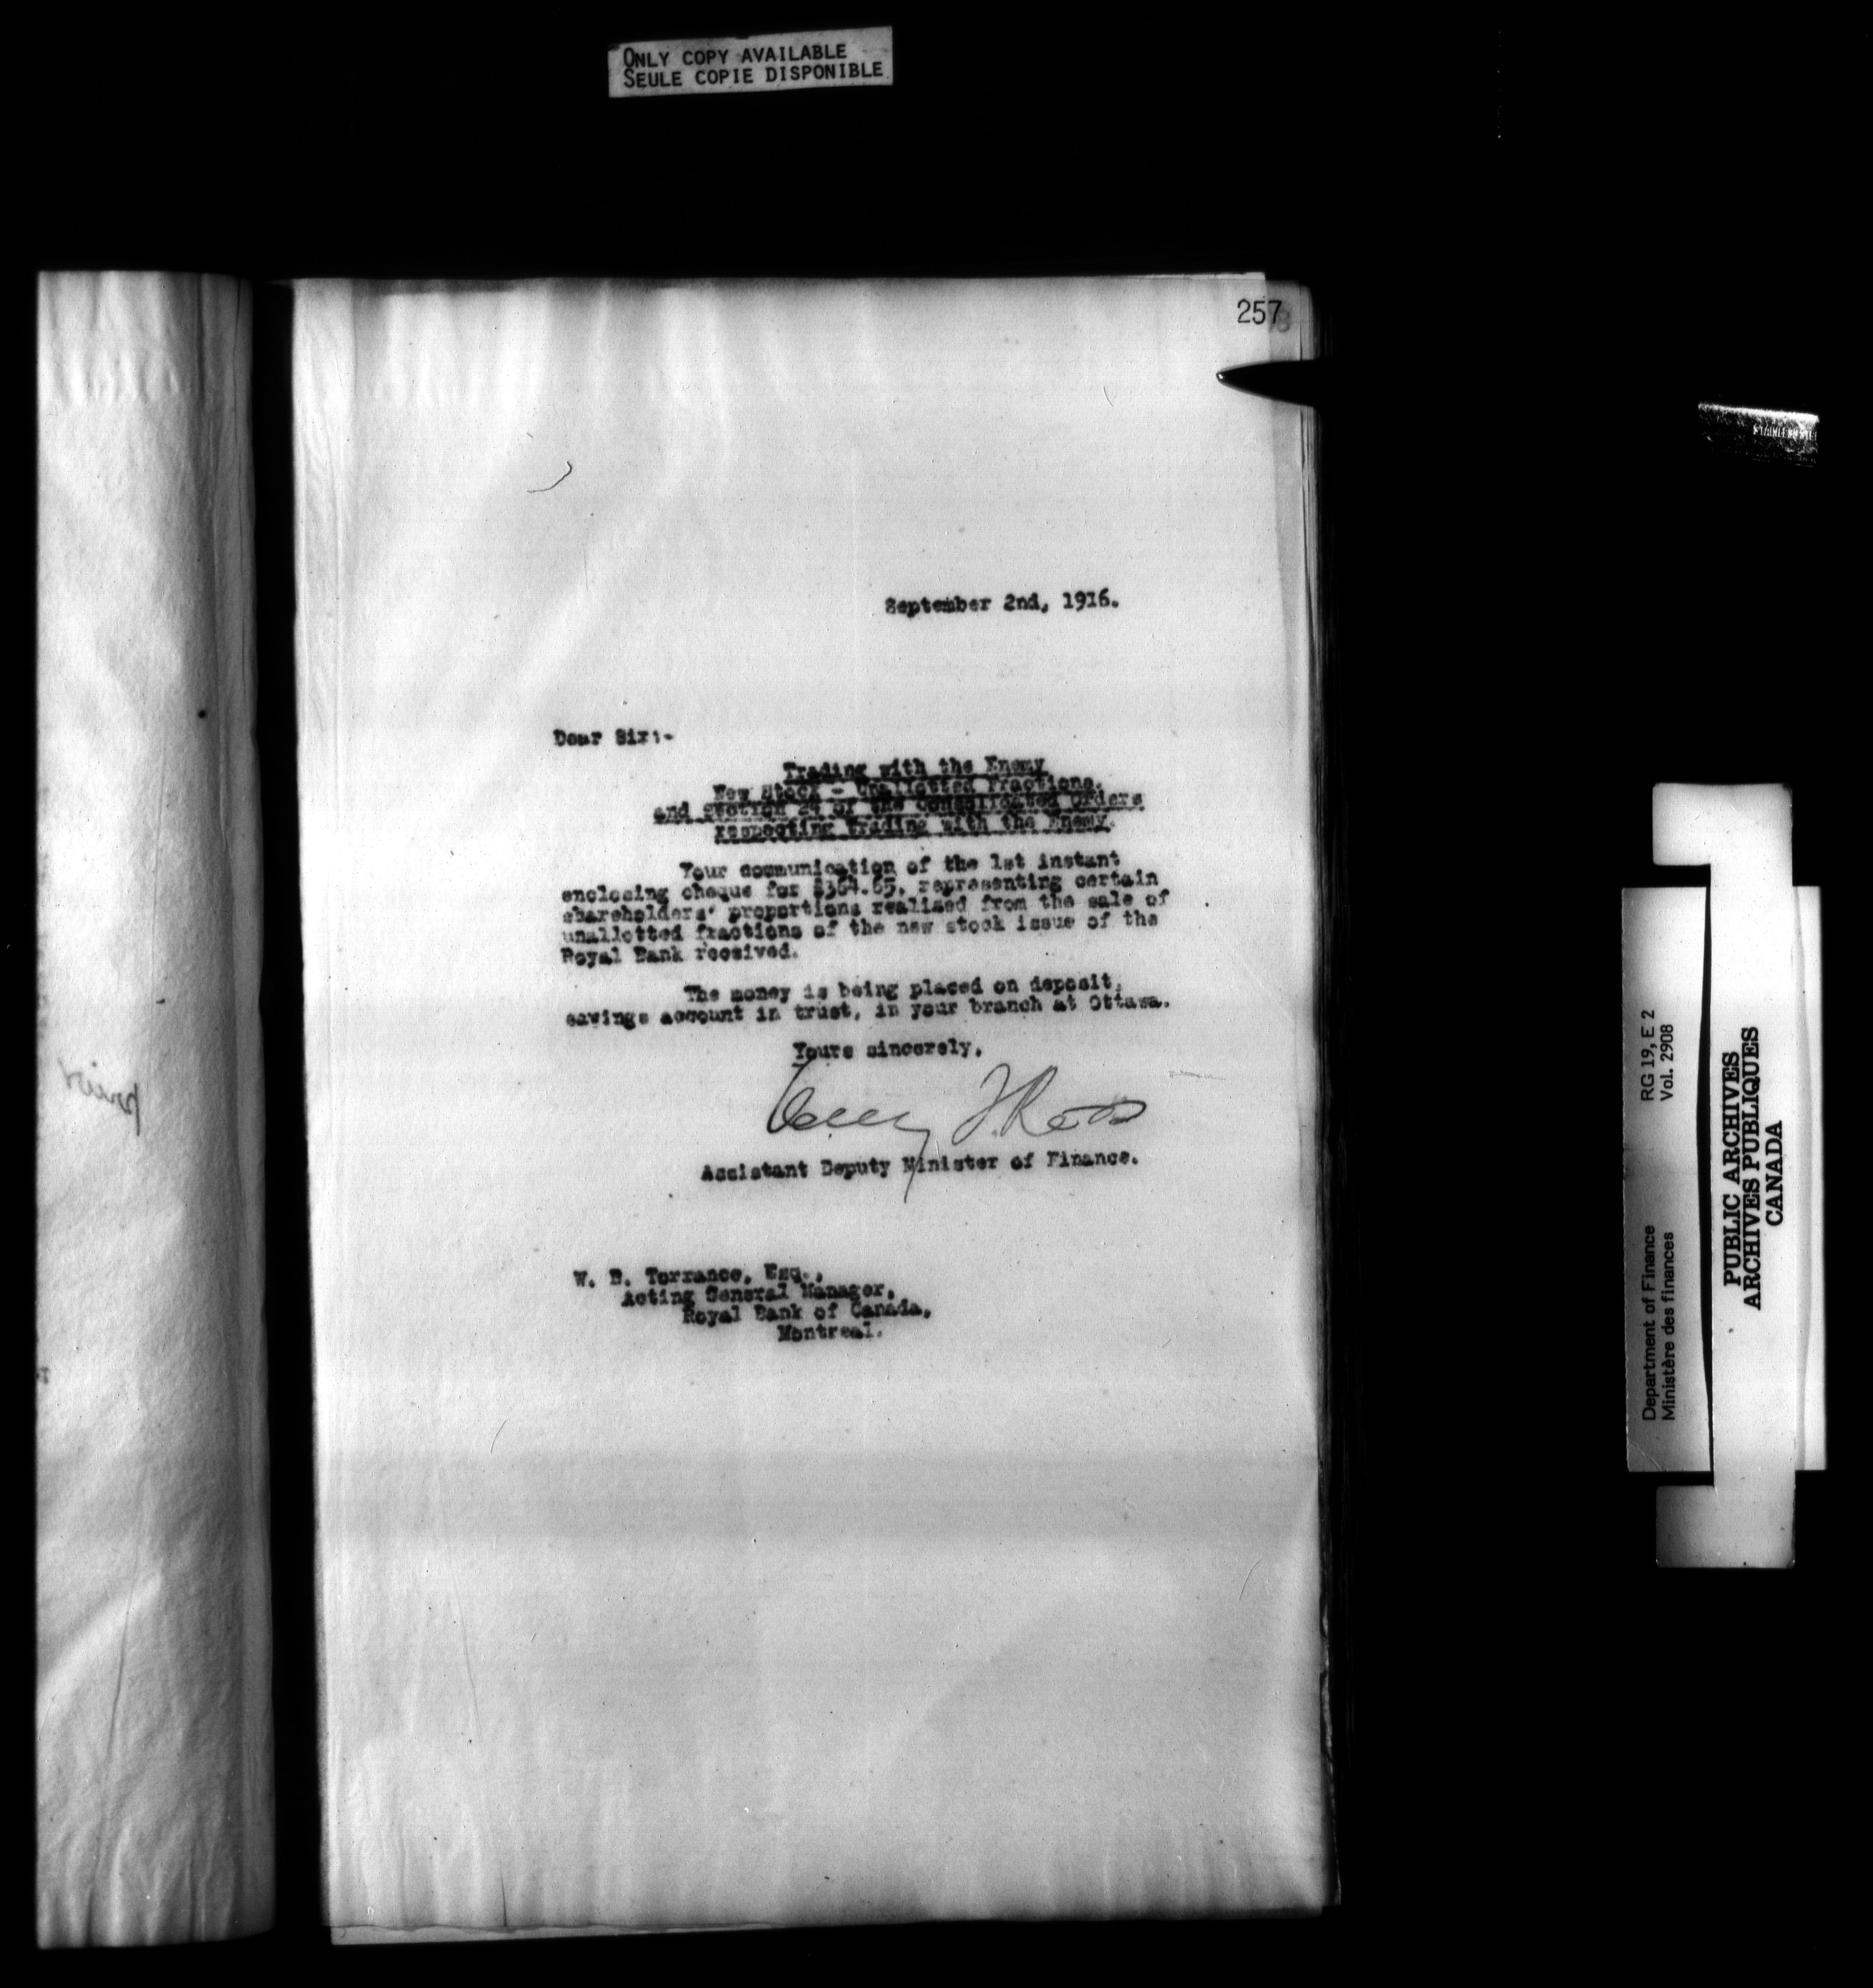 ONLY COPY AVAILABLE
SEULE COPIE DISPONIBLE
257
September 2nd, 1916.
Dear Sir:-
Trading with the Enemy
New Stock - Unallotted Fractions.
and Section 24 of the Consolidated Orders
respecting Trading with the Enemy.
Your communication of the 1st instant
enclosing cheque for $364.65, representing certain
shareholders' proportions realized from the sale of
unallotted fractions of the new stock issue of the
Royal Bank received.
The money is being placed on deposit,
savings account in trust, in your branch at Ottawa.
Yours sincerely,
Assistant Deputy Minister of Finance.
W. B. Torrance, Esq.,
Acting General Manager,
Royal Bank of Canada,
Montreal.
Department of Finance RG 19, E 2
Ministère des finances Vol. 2908
PUBLIC ARCHIVES
ARCHIVES PUBLIQUES
CANADA